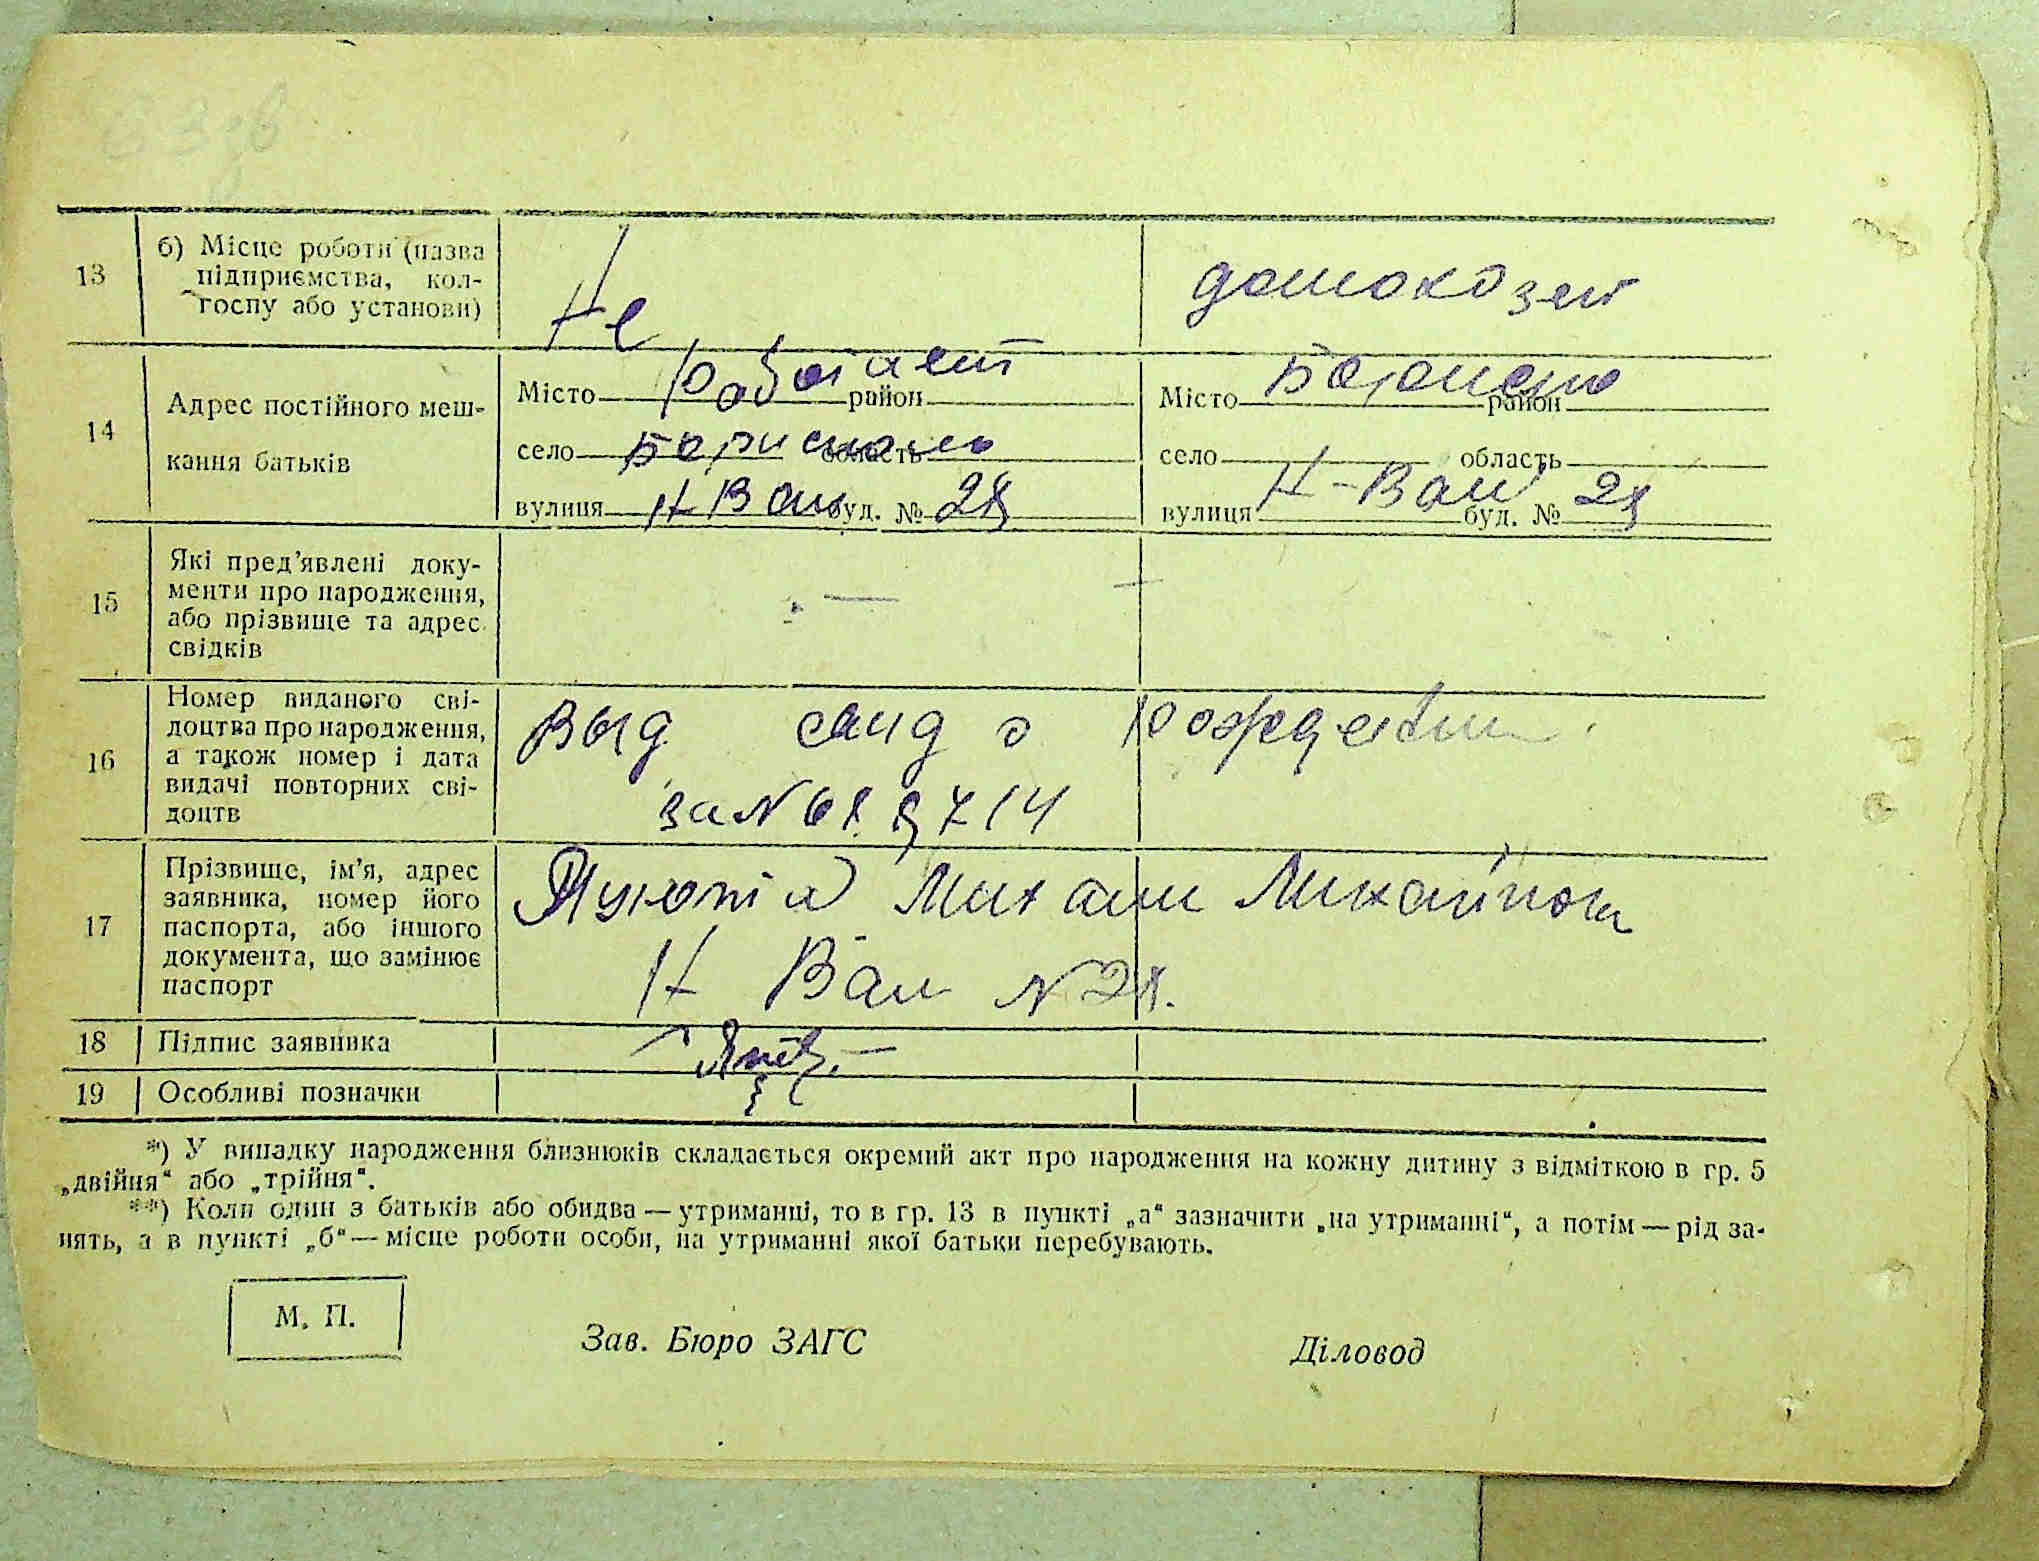 13 б) Місце роботи (назва
підприємства, кол-
госпу або установи)
Не
работает
домохозяй
14 Адрес постійного меш-
кання батьків
Місто район
село Борисполь область
вулиця Н Вал буд. № 28
Місто Борисполь район
село область
вулиця Н-Вал буд. № 28
15 Які пред’явлені доку-
менти про народження,
або прізвище та адрес
свідків
—
16 Номер виданого сві-
доцтва про народження,
а також номер і дата
видачі повторних сві-
доцтв
Выд свид о рождении
за №
17 Прізвище, ім’я, адрес
заявника, номер його
паспорта, або іншого
документа, що замінює
паспорт
Михаил Михайлов
Н Вал № 28.
18 Підпис заявника
19 Особливі позначки
*) У випадку народження близнюків складається окремий акт про народження на кожну дитину з відміткою в гр. 5
„двійня“ або „трійня“.
**) Коли один з батьків або обидва — утриманці, то в гр. 13 в пункті „а“ зазначити „на утриманні“, а потім — рід за-
нять, а в пункті „б“ — місце роботи особи, на утриманні якої батьки перебувають.
М. П.
Зав. Бюро ЗАГС
Діловод